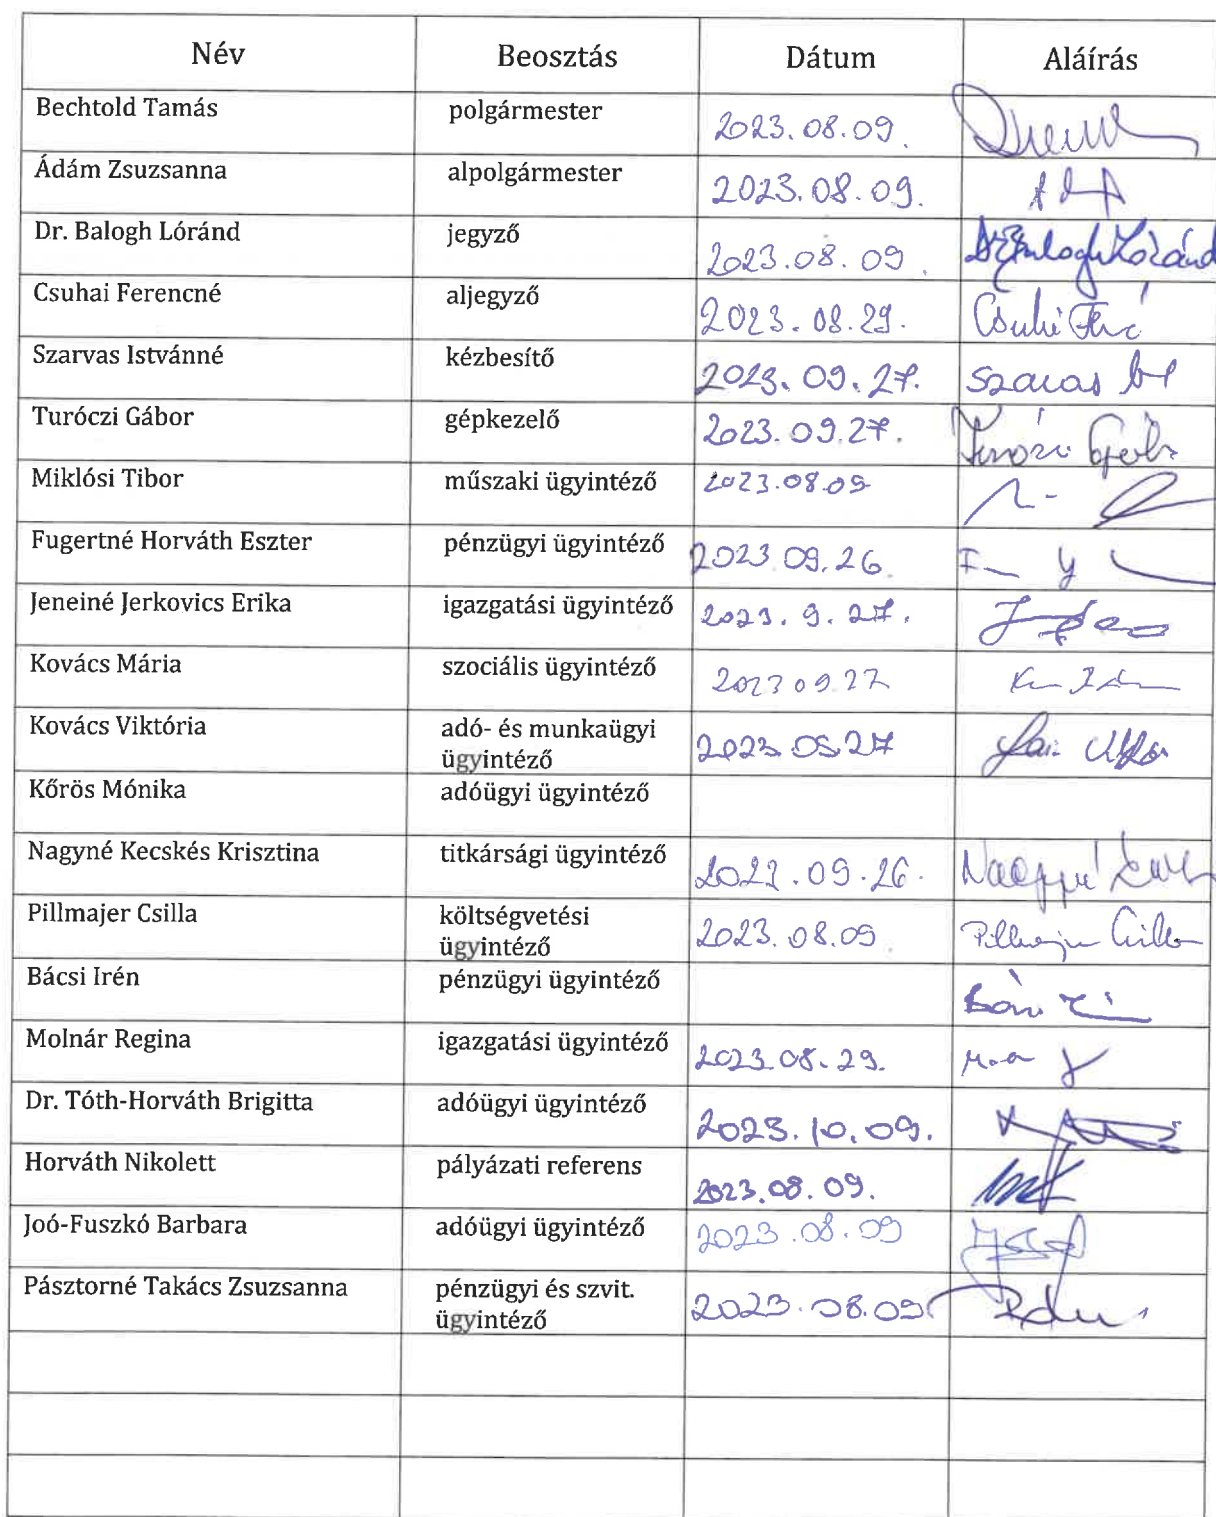 Név Beosztás Dátum Aláírás
Bechtold Tamás polgármester 2023.08.09.
Ádám Zsuzsanna alpolgármester 2023.08.09.
Dr. Balogh Lóránd jegyző 2023.08.09. Dr Balogh Lóránd
Csuhai Ferencné aljegyző 2023.08.29.
Szarvas Istvánné kézbesítő 2023.09.27.
Turóczi Gábor gépkezelő 2023.09.27.
Miklósi Tibor műszaki ügyintéző 2023.08.09
Fugertné Horváth Eszter pénzügyi ügyintéző 2023.09.26.
Jeneiné Jerkovics Erika igazgatási ügyintéző 2023.9.27.
Kovács Mária szociális ügyintéző 2023 09.27
Kovács Viktória adó- és munkaügyi
ügyintéző 2023.09.27
Kőrös Mónika adóügyi ügyintéző
Nagyné Kecskés Krisztina titkársági ügyintéző 2023.09.26.
Pillmajer Csilla költségvetési
ügyintéző 2023.08.09 Pillmajer Csilla
Bácsi Irén pénzügyi ügyintéző
Molnár Regina igazgatási ügyintéző 2023.08.29.
Dr. Tóth-Horváth Brigitta adóügyi ügyintéző 2023.10.09.
Horváth Nikolett pályázati referens 2023.08.09.
Joó-Fuszkó Barbara adóügyi ügyintéző 2023.08.09
Pásztorné Takács Zsuzsanna pénzügyi és szvit.
ügyintéző 2023.08.09